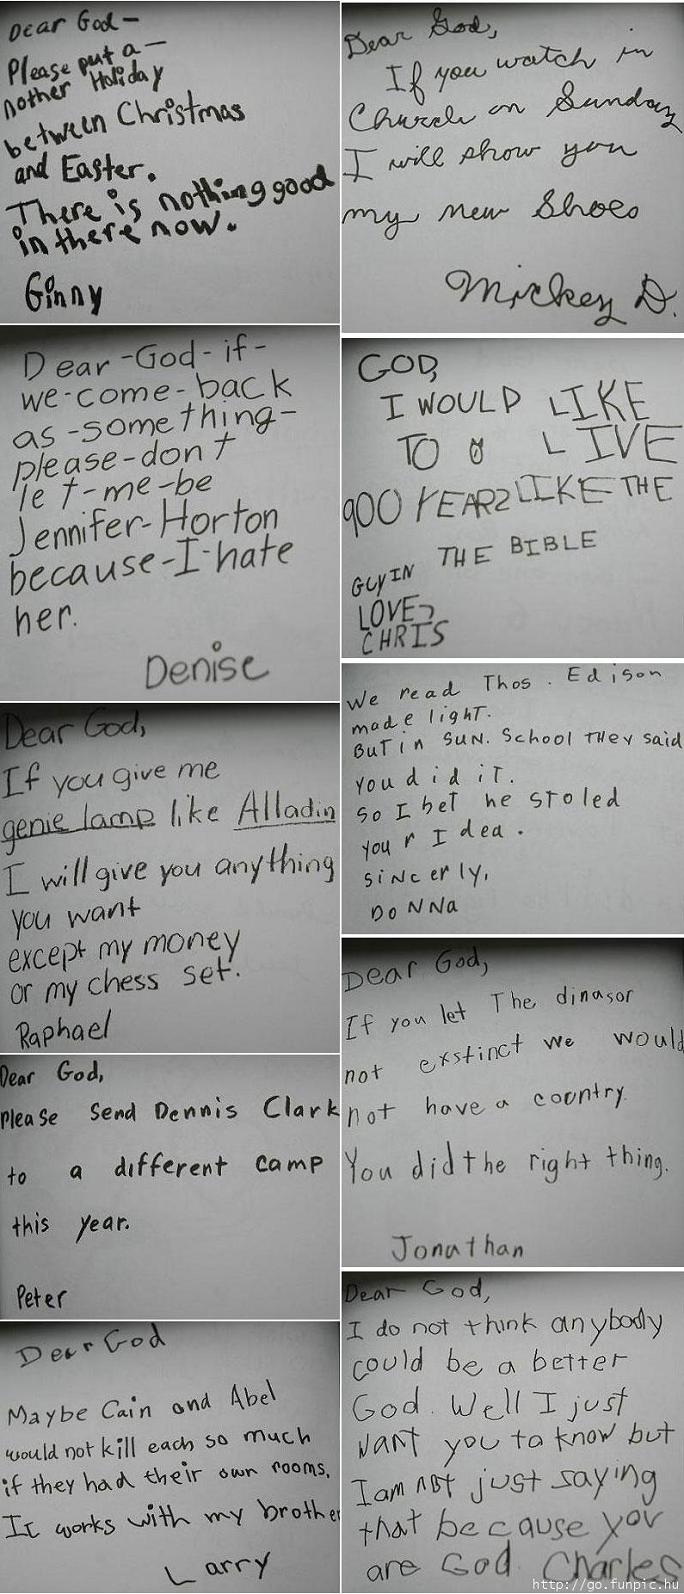 Dear God-
Please put a-
nother Holiday
between Christmas
and Easter.
There is nothing good
in there now.
Ginny
Dear God,
If you watch in
Church on Sunday
I will show you
my new Shoes
Mickey D.
Dear-God-if-
we-come-back
as-something-
please-don't
let-me-be
Jennifer-Horton
because-I-hate
her.
Denise
GOD,
I WOULD LIKE
TO LIVE
900 YEARS LIKE THE
GUY IN THE BIBLE
LOVE,
CHRIS
Dear God,
If you give me
genie lamp like Alladin
I will give you anything
you want
except my money
or my chess set.
Raphael
We read Thos. Edison
made light.
But in Sun. School they said
you did it.
So I bet he stoled
your Idea.
Sincerly,
Donna
Dear God,
Please Send Dennis Clark
to a different camp
this year.
Peter
Dear God,
If you let The dinasor
not exstinct we would
not have a country.
You did the right thing.
Jonathan
Dear God
Maybe Cain and Abel
would not kill each so much
if they had their own rooms.
It works with my brother
Larry
Dear God,
I do not think anybody
could be a better
God. Well I just
want you to know but
I am not just saying
that because you
are God. Charles
http://go.funpic.hu